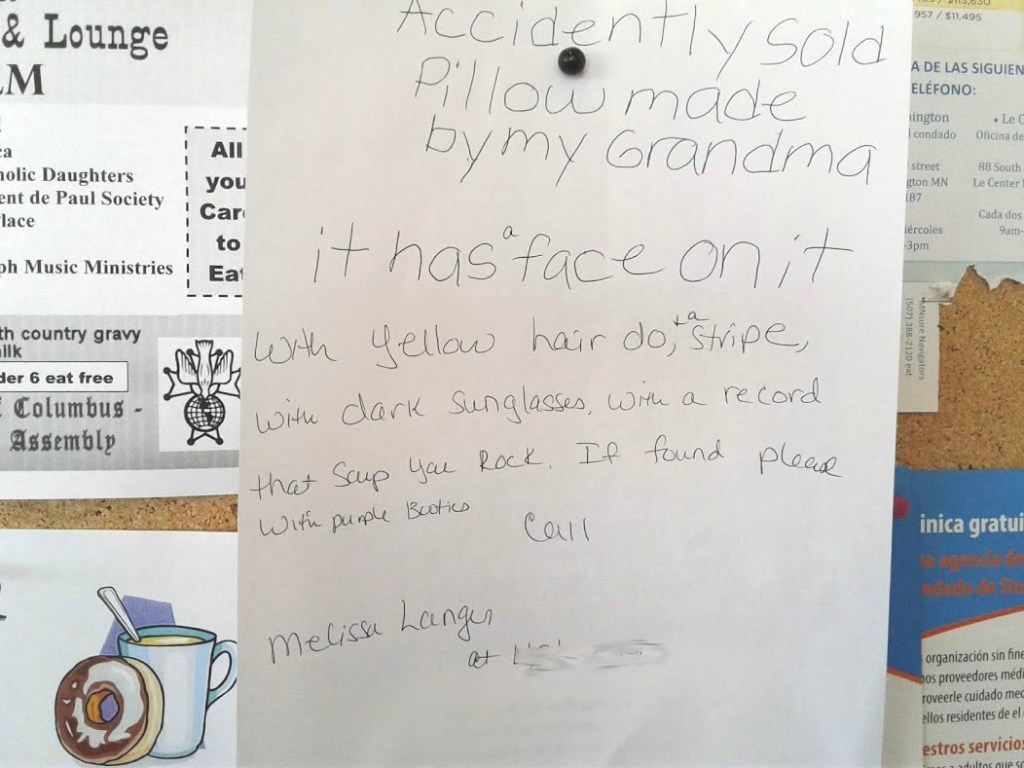 & Lounge
LM
ca
holic Daughters
ent de Paul Society
Place
ph Music Ministries
All
you
Car
to
Eat
th country gravy
ilk
der 6 eat free
f Columbus -
Assembly
Accidently Sold
Pillow made
by my Grandma
it has a face on it
With yellow hair do, + a stripe,
with dark sunglasses, with a record
that Says you Rock. If found please
With purple Booties
Call
Melissa Langer
at
957 / $11,495
A DE LAS SIGUIEN
ELÉFONO:
ington
l condado
street
gton MN
187
iércoles
-3pm
• Le C
Oficina de
88 South
Le Center
Cada dos
9am-
MNsure Navigators
(507) 388-2120 ext
ínica gratui
na agencia de
ndado de Ste
organización sin fine
nos proveedores médi
roveerle cuidado med
ellos residentes de el
estros servicios
a adultos que